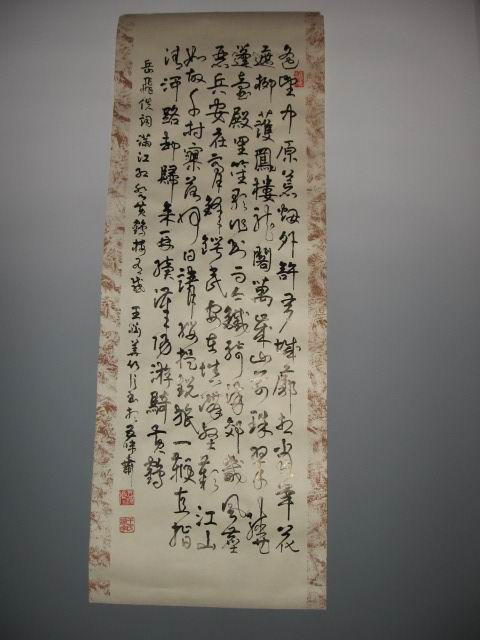 遥望中原荒烟外許多城廓想当年花
遮柳護鳳樓龍閣萬歲山前珠翠繞
蓬壺殿里笙歌作到而今鐵騎滿郊畿風塵
惡兵安在膏鋒鍔民安在填溝壑歎江山
如故千村寥落何日請纓提銳旅一鞭直指
清河洛却歸來再续漢陽游騎黄鶴
岳飛佚词滿江红登黄鶴樓有感 王